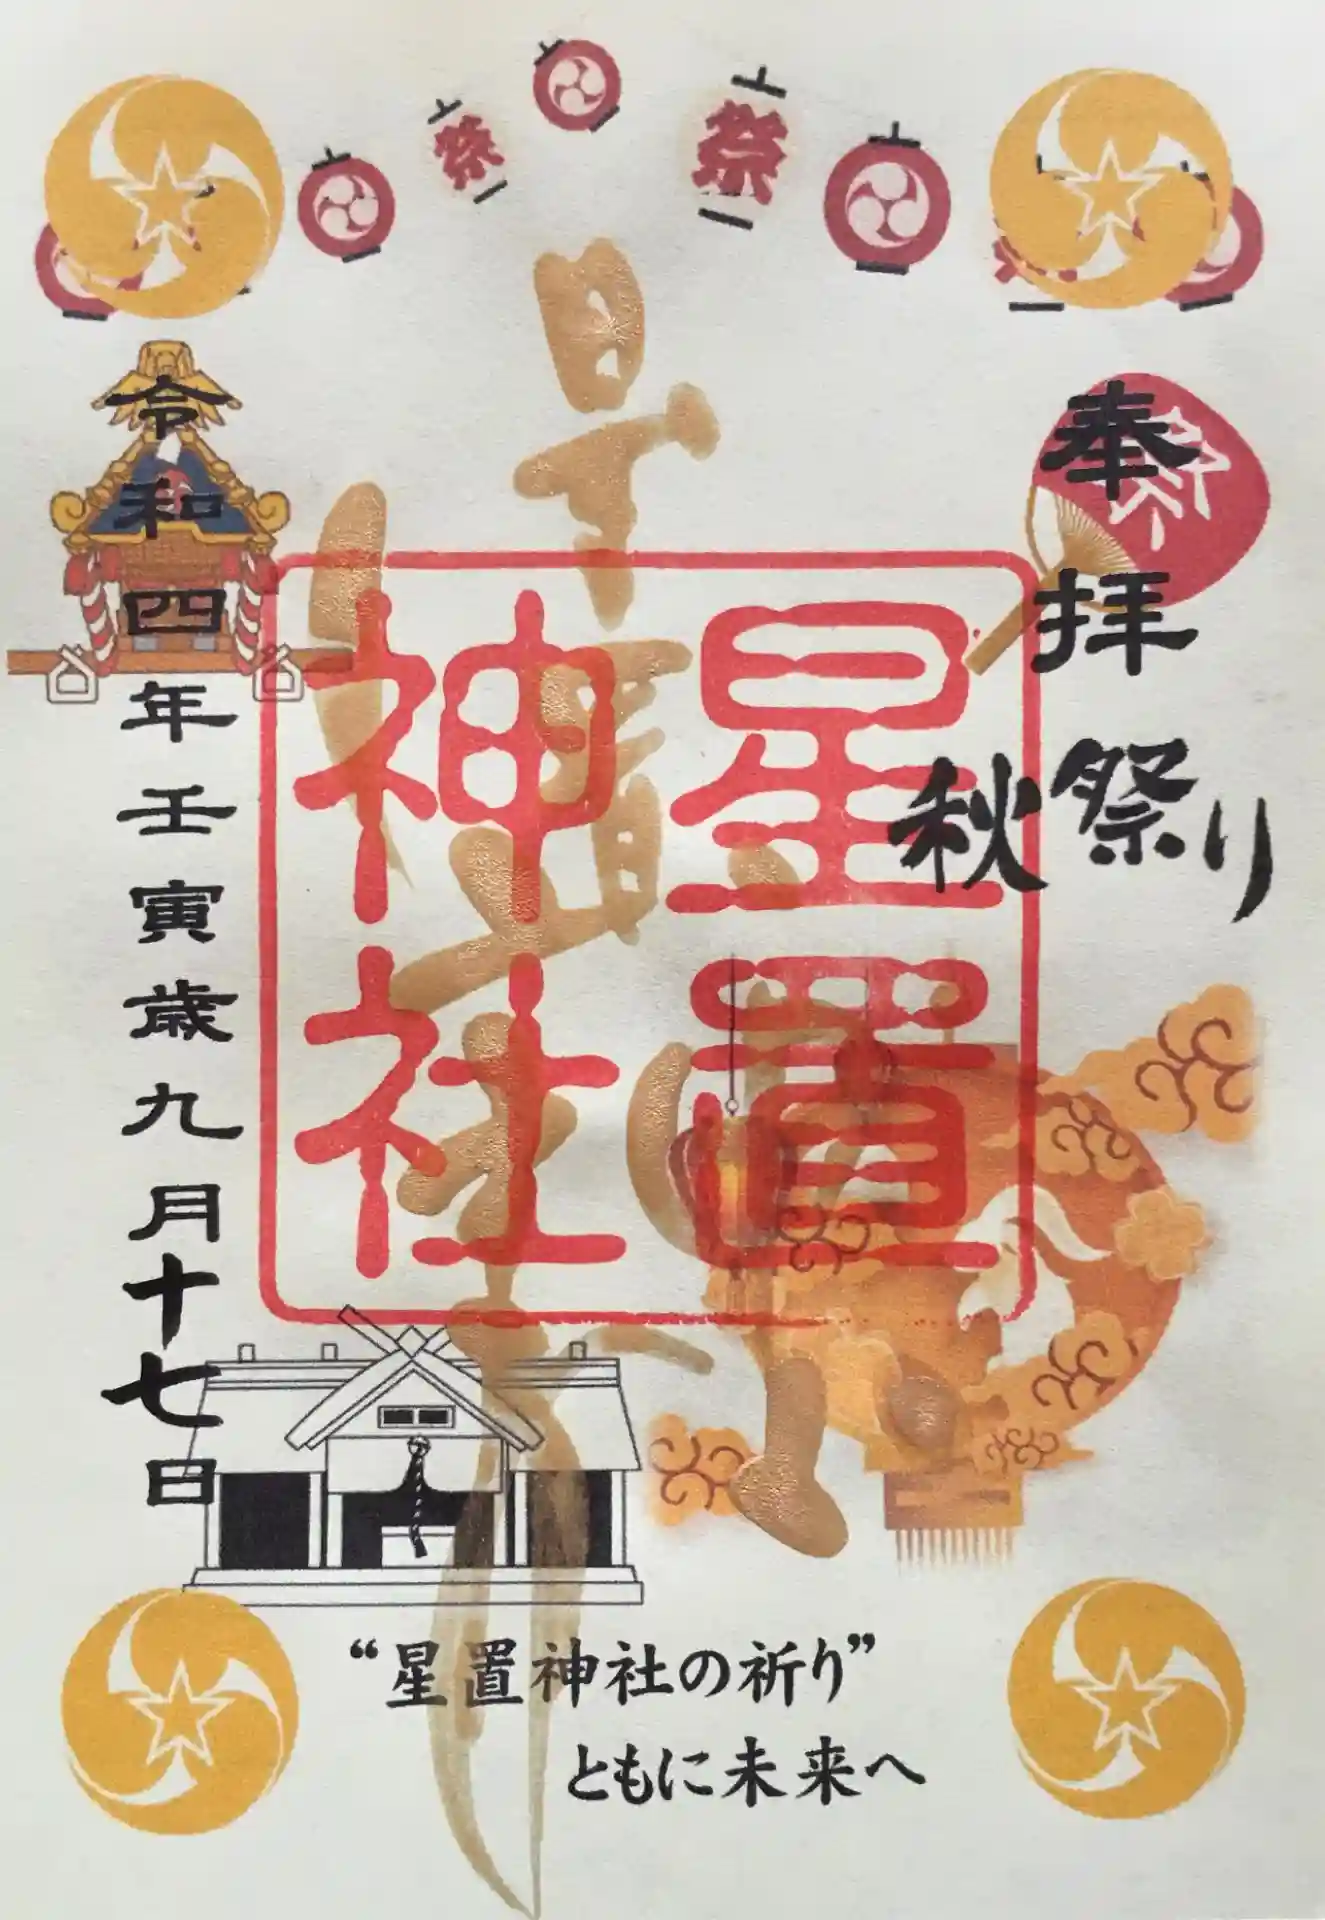 祭
祭
祭
奉拝
秋祭り
星置神社
星置神社
令和四年壬寅歳九月十七日
“星置神社の祈り”
ともに未来へ